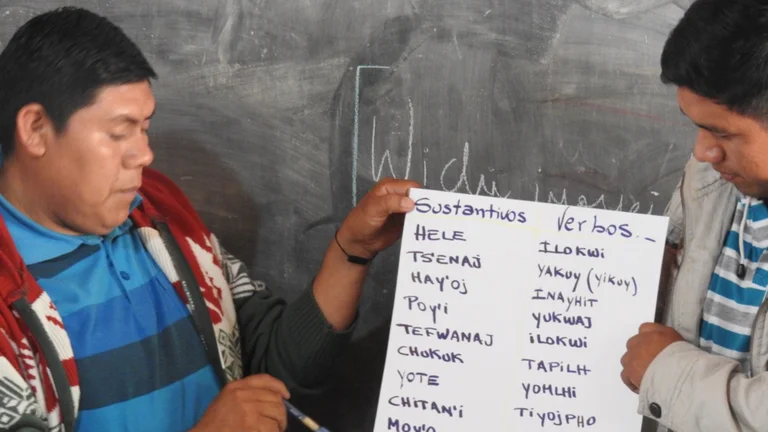 Sustantivos
HELE
TS'ENAJ
HAY'OJ
POY'i
TEFWANAJ
CHUKUK
YOTE
CHITAN'i
MOY'O
Verbos._
iLOKWi
YAKUY (YiKUY)
INAYHIT
YUKWAJ
iLOKWi
TAPILH
YOMLHi
TiYOJPHO